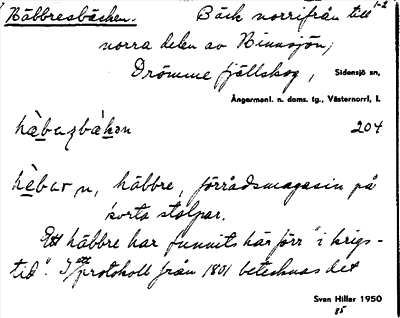 Häbbresbäcken. Bäck norrifrån till 1-2
norra delen av Hinnsjön;
Drömme fjällskog, Sidensjö sn,
Ångermanl. n. doms. tg., Västernorrl. l.
hä̀bazbä́kən 204
hä̀bar n, häbbre, förrådsmagasin på
korta stolpar.
Ett häbbre har funnits här förr "i krigs-
tid". I ett protokoll från 1801 betecknas det
Sven Hiller 1950
85